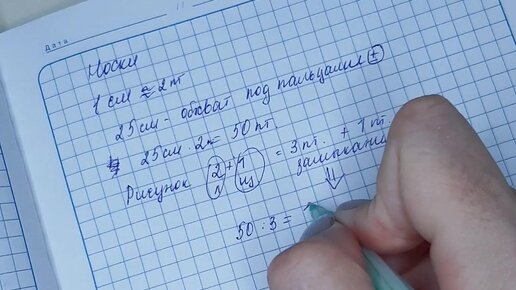 Дата
11
Носки
1 см ≈ 2 п
25 см - обхват под пальцами ±
25 см · 2п = 50 пт.
Рисунок 2 л + 1 из = 3 пт. + 1 пт
замыкани
50 : 3 =